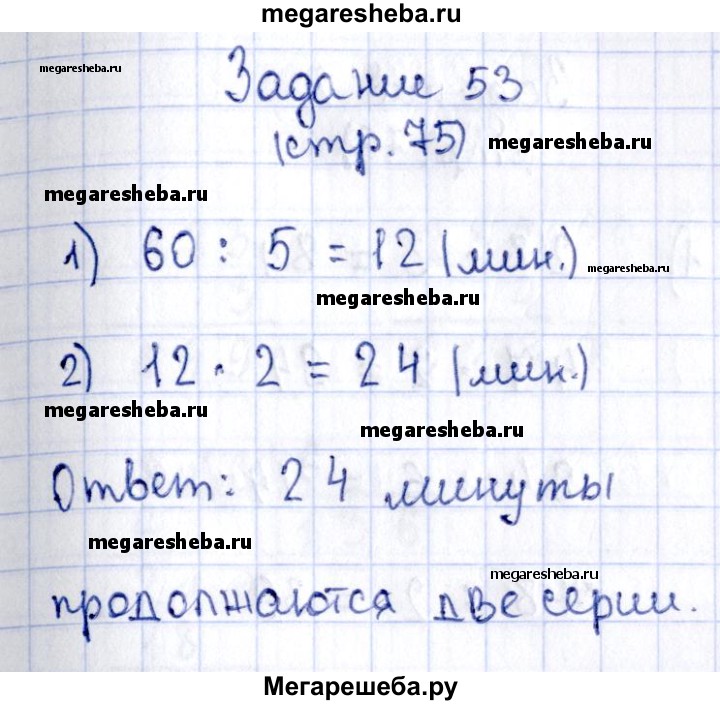 megaresheba.ru
megaresheba.ru
Задание 53
(стр. 75)
megaresheba.ru
megaresheba.ru
1) 60 : 5 = 12 (мин.)
megaresheba.ru
megaresheba.ru
2) 12 · 2 = 24 (мин.)
megaresheba.ru
megaresheba.ru
Ответ: 24 минуты
megaresheba.ru
megaresheba.ru
продолжаются две серии.
Мегарешеба.ру